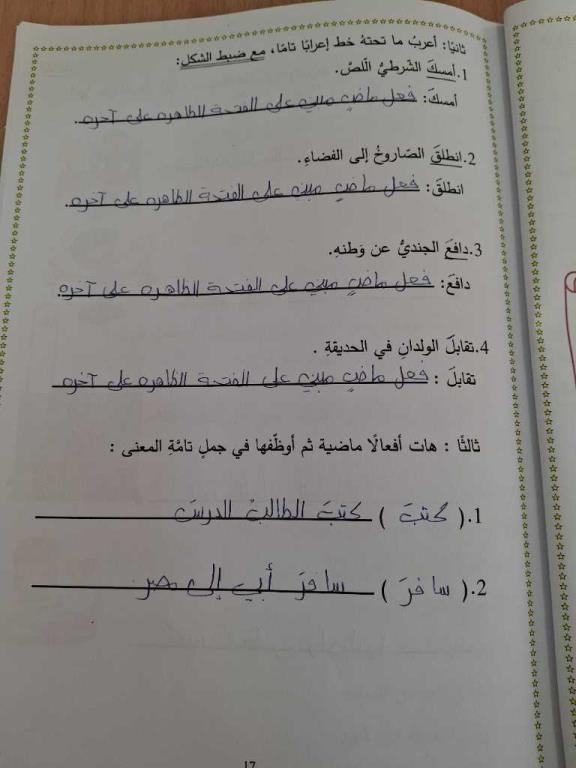 ثانيًا: أعربُ ما تحتهُ خط إعرابًا تامًا، مع ضبط الشكل:
1.أمسكَ الشّرطيُّ اللصَّ.
أمسكَ: فعل ماضٍ مبني على الفتحة الظاهره على آخره.
2.انطلقَ الصّاروخُ إلى الفضاءِ.
انطلقَ: فعل ماضٍ مبني على الفتحة الظاهره على آخره.
3.دافعَ الجنديُّ عن وَطنهِ.
دافعَ: فعل ماضٍ مبني على الفتحة الظاهره على آخره.
4.تقابلَ الولدانِ في الحديقةِ .
تقابلَ : فعل ماضٍ مبني على الفتحة الظاهره على آخره
ثالثًا : هات أفعالًا ماضية ثم أوظّفها في جملٍ تامّةِ المعنى :
1.( كتبَ ) كتبَ الطالبُ الدرسَ
2.( سافرَ ) سافرَ أبي إلى مصر
17